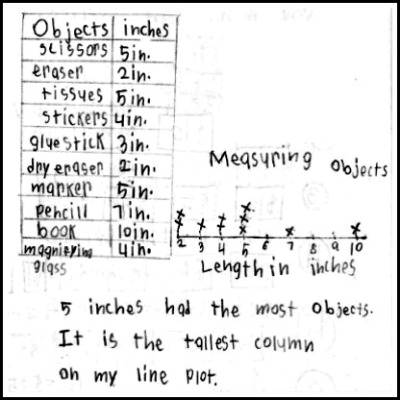 Objects inches
scissors 5in.
eraser 2in.
tissues 5in.
stickers 4in.
gluestick 3in.
dry eraser 2in.
marker 5in.
pencill 7in.
book 10in.
magnifying glass 4in.
Measuring Objects
2 3 4 5 6 7 8 9 10
Length in inches
5 inches had the most objects.
It is the tallest column
on my line plot.